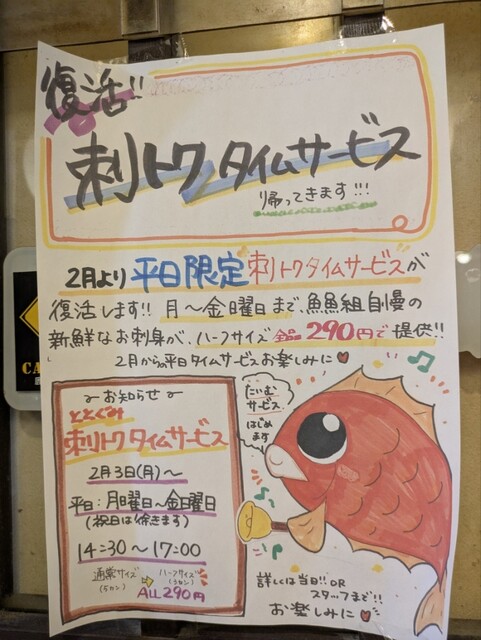 復活!!
刺トクタイムサービス
帰ってきます!!!
2月より平日限定刺トクタイムサービスが
復活します!! 月~金曜日まで、魚魚組自慢の
新鮮なお刺身が、ハーフサイズ全品290円で提供!!
2月からの平日タイムサービスお楽しみに♥
~お知らせ~
ととぐみ
刺トクタイムサービス
2月3日(月)~
平日:月曜日~金曜日
(祝日は除きます)
14:30~17:00
通常サイズ(5カン)⇨ハーフサイズ(3カン)
ALL290円
たいむ
サービス
はじめ
ます
詳しくは当日!! OR
スタッフまで!!
お楽しみに♥
CA